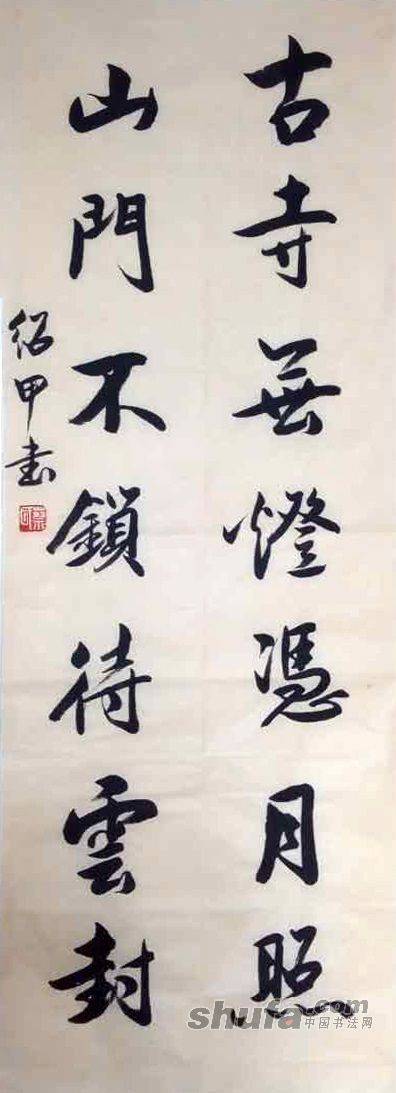 古寺無燈憑月照
山門不鎖待雲封
紹甲書
shufa.com
中国书法网